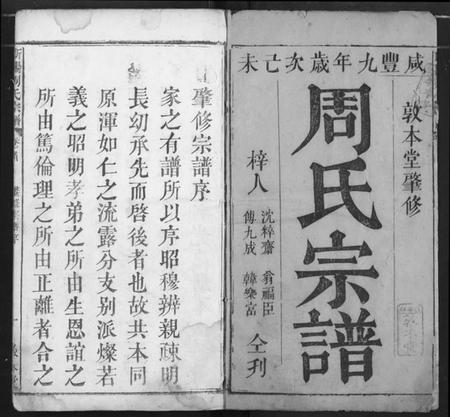 咸豐九年歲次己未
敦本堂肇修
周氏宗譜
梓人
沈粹齋
翁福臣
傅九成
韓樂富
仝刋
肇修宗譜序
家之有譜所以序昭穆辨親疎明
長幼承先而啓後者也故共本同
原渾如仁之流露分支别派燦若
義之昭明孝弟之所由生恩誼之
所由篤倫理之所由正離者合之
周氏宗譜